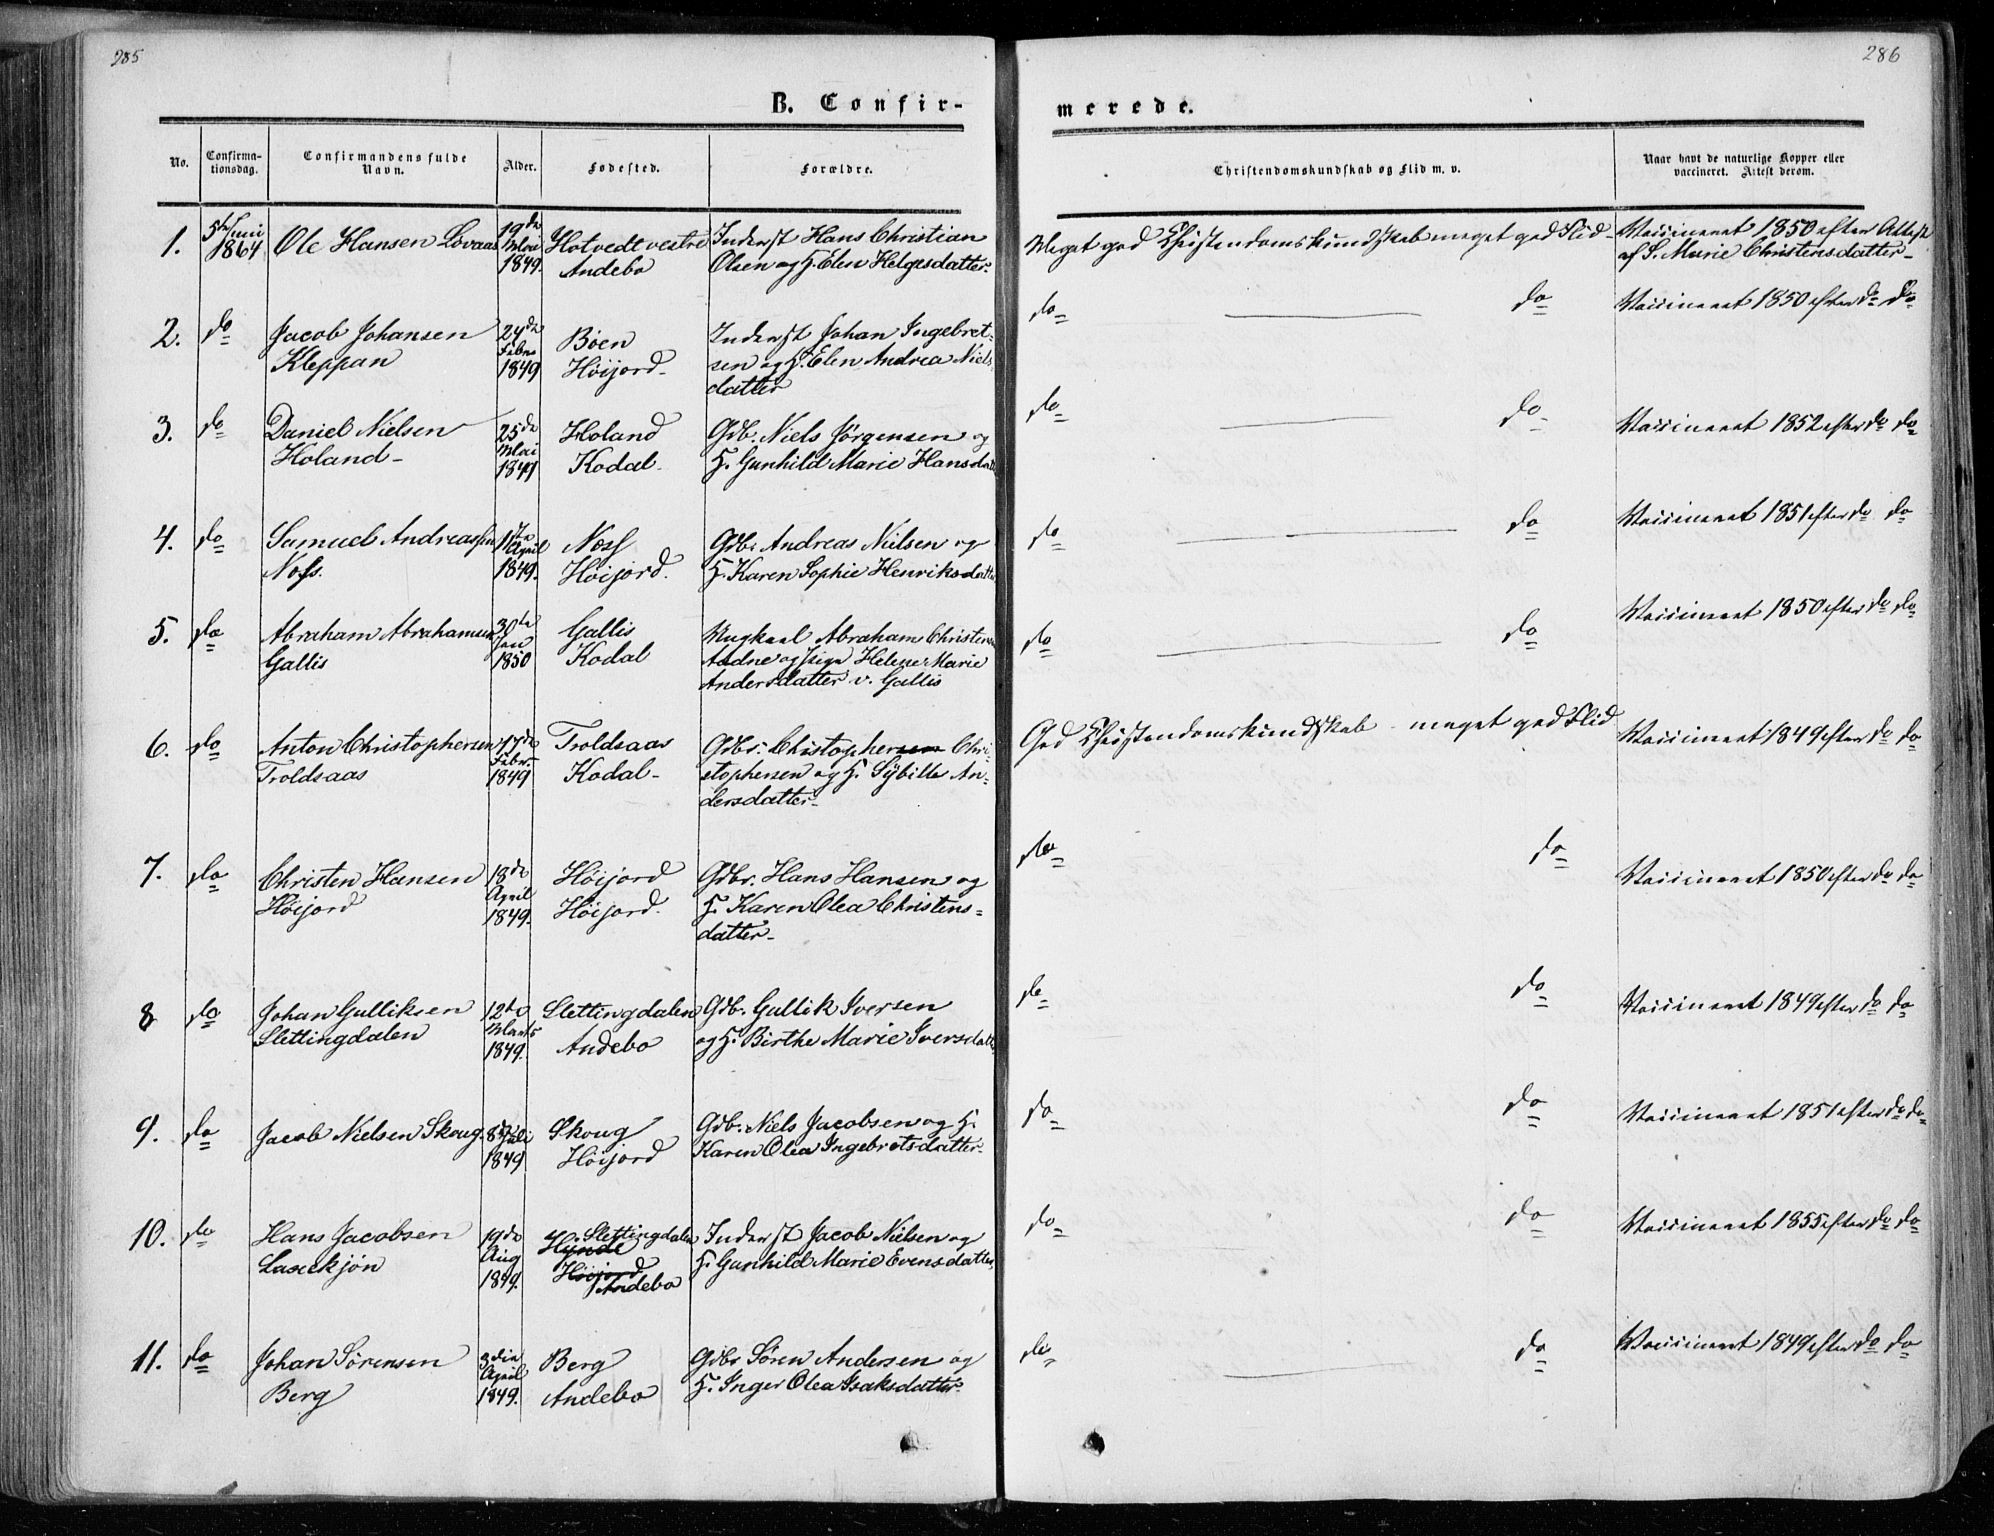 285
286
B. Confir-
merede.
No.
Confirma-
tionsdag.
Confirmandens fulde
Navn.
Alder.
Fødested.
Forældre.
Christendomskundskab og Flid m. v.
Naar havt de naturlige Kopper eller
vaccineret. Attest derom.
1. 5te Juni 1864 Ole Hansen Lovaas 19de Mai 1849. Hotvedt vestre Andebo
Inderst Hans Christian
Olsen og H. Elen Helgesdatter.
Meget god Christendomskundskab meget god Flid
Vaccineret 1850 efter Attest
af S. Marie Christensdatter
2. do Jacob Johansen
Kleppan
24de Febr. 1849
Bøen
Höijord
Inderst Johan Ingebret-
sen og H. Elen Andrea Niels
datter
do do
Vaccineret 1850 efter do do
3. do Daniel Nielsen
Holand
25de Mai 1849
Holand
Kodal
Gdb. Niels Jörgensen og
H. Gunhild Marie Hansdatt
do do
Vaccineret 1852 efter do do
4. do Samuel Andreassen
Noss.
April 1849.
Noss
Höijord.
Gdb. Andreas Nielsen og
H. Karen Sophie Henriksdatter
do do
Vaccineret 1851 efter do do
5. do Abraham Abrahamsen
Gallis
30te Jan 1850
Gallis
Kodal
Ungkaal Abraham Christensen
Aadne og Pige Helene Marie
Andersdatter v. Gallis
do do
Vaccineret 1850 efter do do
6. do Anton Christophersen
Troldsaas
Febr. 1849
Troldsaas
Kodal
Gdbr. Christophersen Chri-
stophersen og H. Sybille An-
dersdatter
God Christendomskundskab meget god Flid
Vaccineret 1849 efter do do
7. do Christen Hansen
Höijord
18de April 1849.
Höijord
Höijord.
Gdbr. Hans Hansen og
H. Karen Olea Christens-
datter
do do
Vaccineret 1850 efter do do
8 do Johan Gulliksen
Slettingdalen
12te Marts 1849.
Slettingdalen
Andebo
Gdb. Gullik Iversen
og H. Birthe Marie Iversdatter
do do
Vaccineret 1849 efter do do
9. do Jacob Nielsen Skoug
8de Juli 1849
Skoug
Höijord
Gdb. Niels Jacobsen og H.
Karen Olea Ingebretsdatter
do do
Vaccineret 1851 efter do do
10. do Hans Jacobsen
19de Aug 1849.
Slettingdalen
Hynde
Höijord
Andebo
Inderst Jacob Nielsen og
H. Gunhild Marie Evensdatter
do do
Vaccineret 1855 efter do do
11. do Johan Sörensen
Berg
3die April 1849.
Berg
Andebo
Gdbr Sören Andersen og
H. Inger Olea Isaksdatter
do do
Vaccineret 1849 efter do do